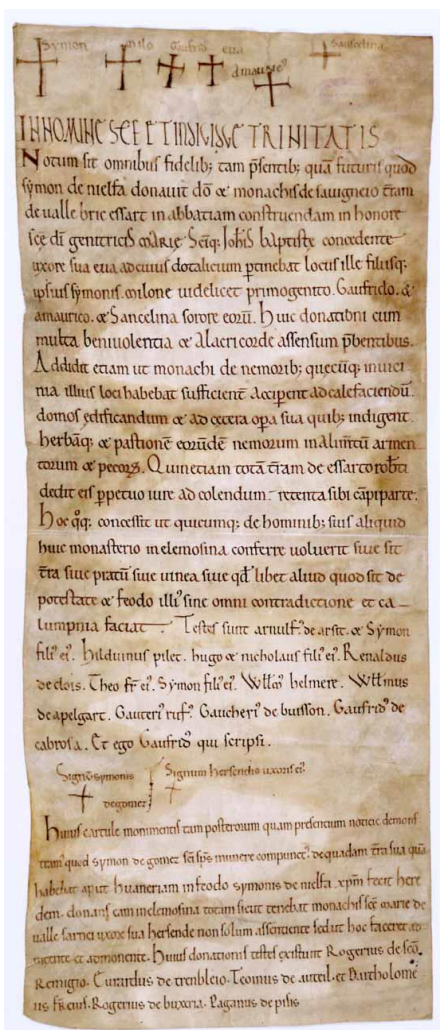 Symon milo Gaufrid eua Sancelina
amauric9
IN NOMINE SCE ET INDIVIDUE TRINITATIS
Notum sit omnibus fidelib; tam psentib; quā futuris quod
symon de nielfa donauit dō & monachis de sauigneio t̄ram
de ualle bric essart in abbatiam construendam in honore
scę dī genitricis marie Sciq; Joh̄is baptistę concedente
uxore sua eua ad cuius dotalicium ptinebat locus ille filiisq;
ipsius symonis. milone uidelicet primogenito. Gaufrido. &
amaurico. & Sancelina sorore eorū. Huic donationi cum
multa beniuolentia & alacri corde assensum p̄bentibus.
Addidit etiam ut monachi de nemorib; quęcūq; in uici
nia illius loci habebat sufficient Accip̄ent ad calefaciendū.
domos ędificandum & ad cęcera op̄a sua quib; indigent.
herbāq; & pastionē eorūdē nemorum in alim̄tū armen
torum & pecorū. Quin etiam totā t̄ram de essarto rob̄ti
dedit eis ppetuo iure ad colendum retenta sibi cāpiparte.
Hoc qq; concessit ut quicumq; de hominib; suis aliquid
huic monasterio in elemosina conferre uoluerit siue sit
t̄ra siue pratū siue uinea siue qd libet aliud quod sit de
potestate & feodo illi9 sine omni contradictione et ca
lumpnia faciat. Testes sunt arnulf9 de arsit. & Symon
fili9 ei9. hilduinus pilet. hugo & nicholaus fili9 ei9. Renaldus
de clois. Theo fr̄ ei9. Symon fili9 ei9. Wiłłm9 helmere. Wiłłmus
de apelgart. Gauteri9 ruf9. Gaucheri9 de buisson. Gaufrid9 de
cabrosa. Et ego Gaufrid9 qui scripsi.
Signū symonis Signum hersendis uxoris ei9
de gomez
Huius cartule monimentis tam posterorum quam presencium noticie demons
tram9 quod Symon de gomez sc̄i sp̄s munere compunct9. de quadam t̄ra sua quā
habebat aput huaneriam in feodo symonis de nielfa. xp̄m fecit here
dem. donans eam in elemosina totam sicut tenebat monachis scē marie de
ualle sarnei uxore sua hersende non solum assentiente sed ut hoc faceret ad
nitente et admonente. Huius donationis testes existunt Rogerius de scō
Remigio. Euardus de trenbleio. Teoinus de auteil. et Bartholome
us fr̄ eius. Rogerius de buxeria. Paganus de pisis